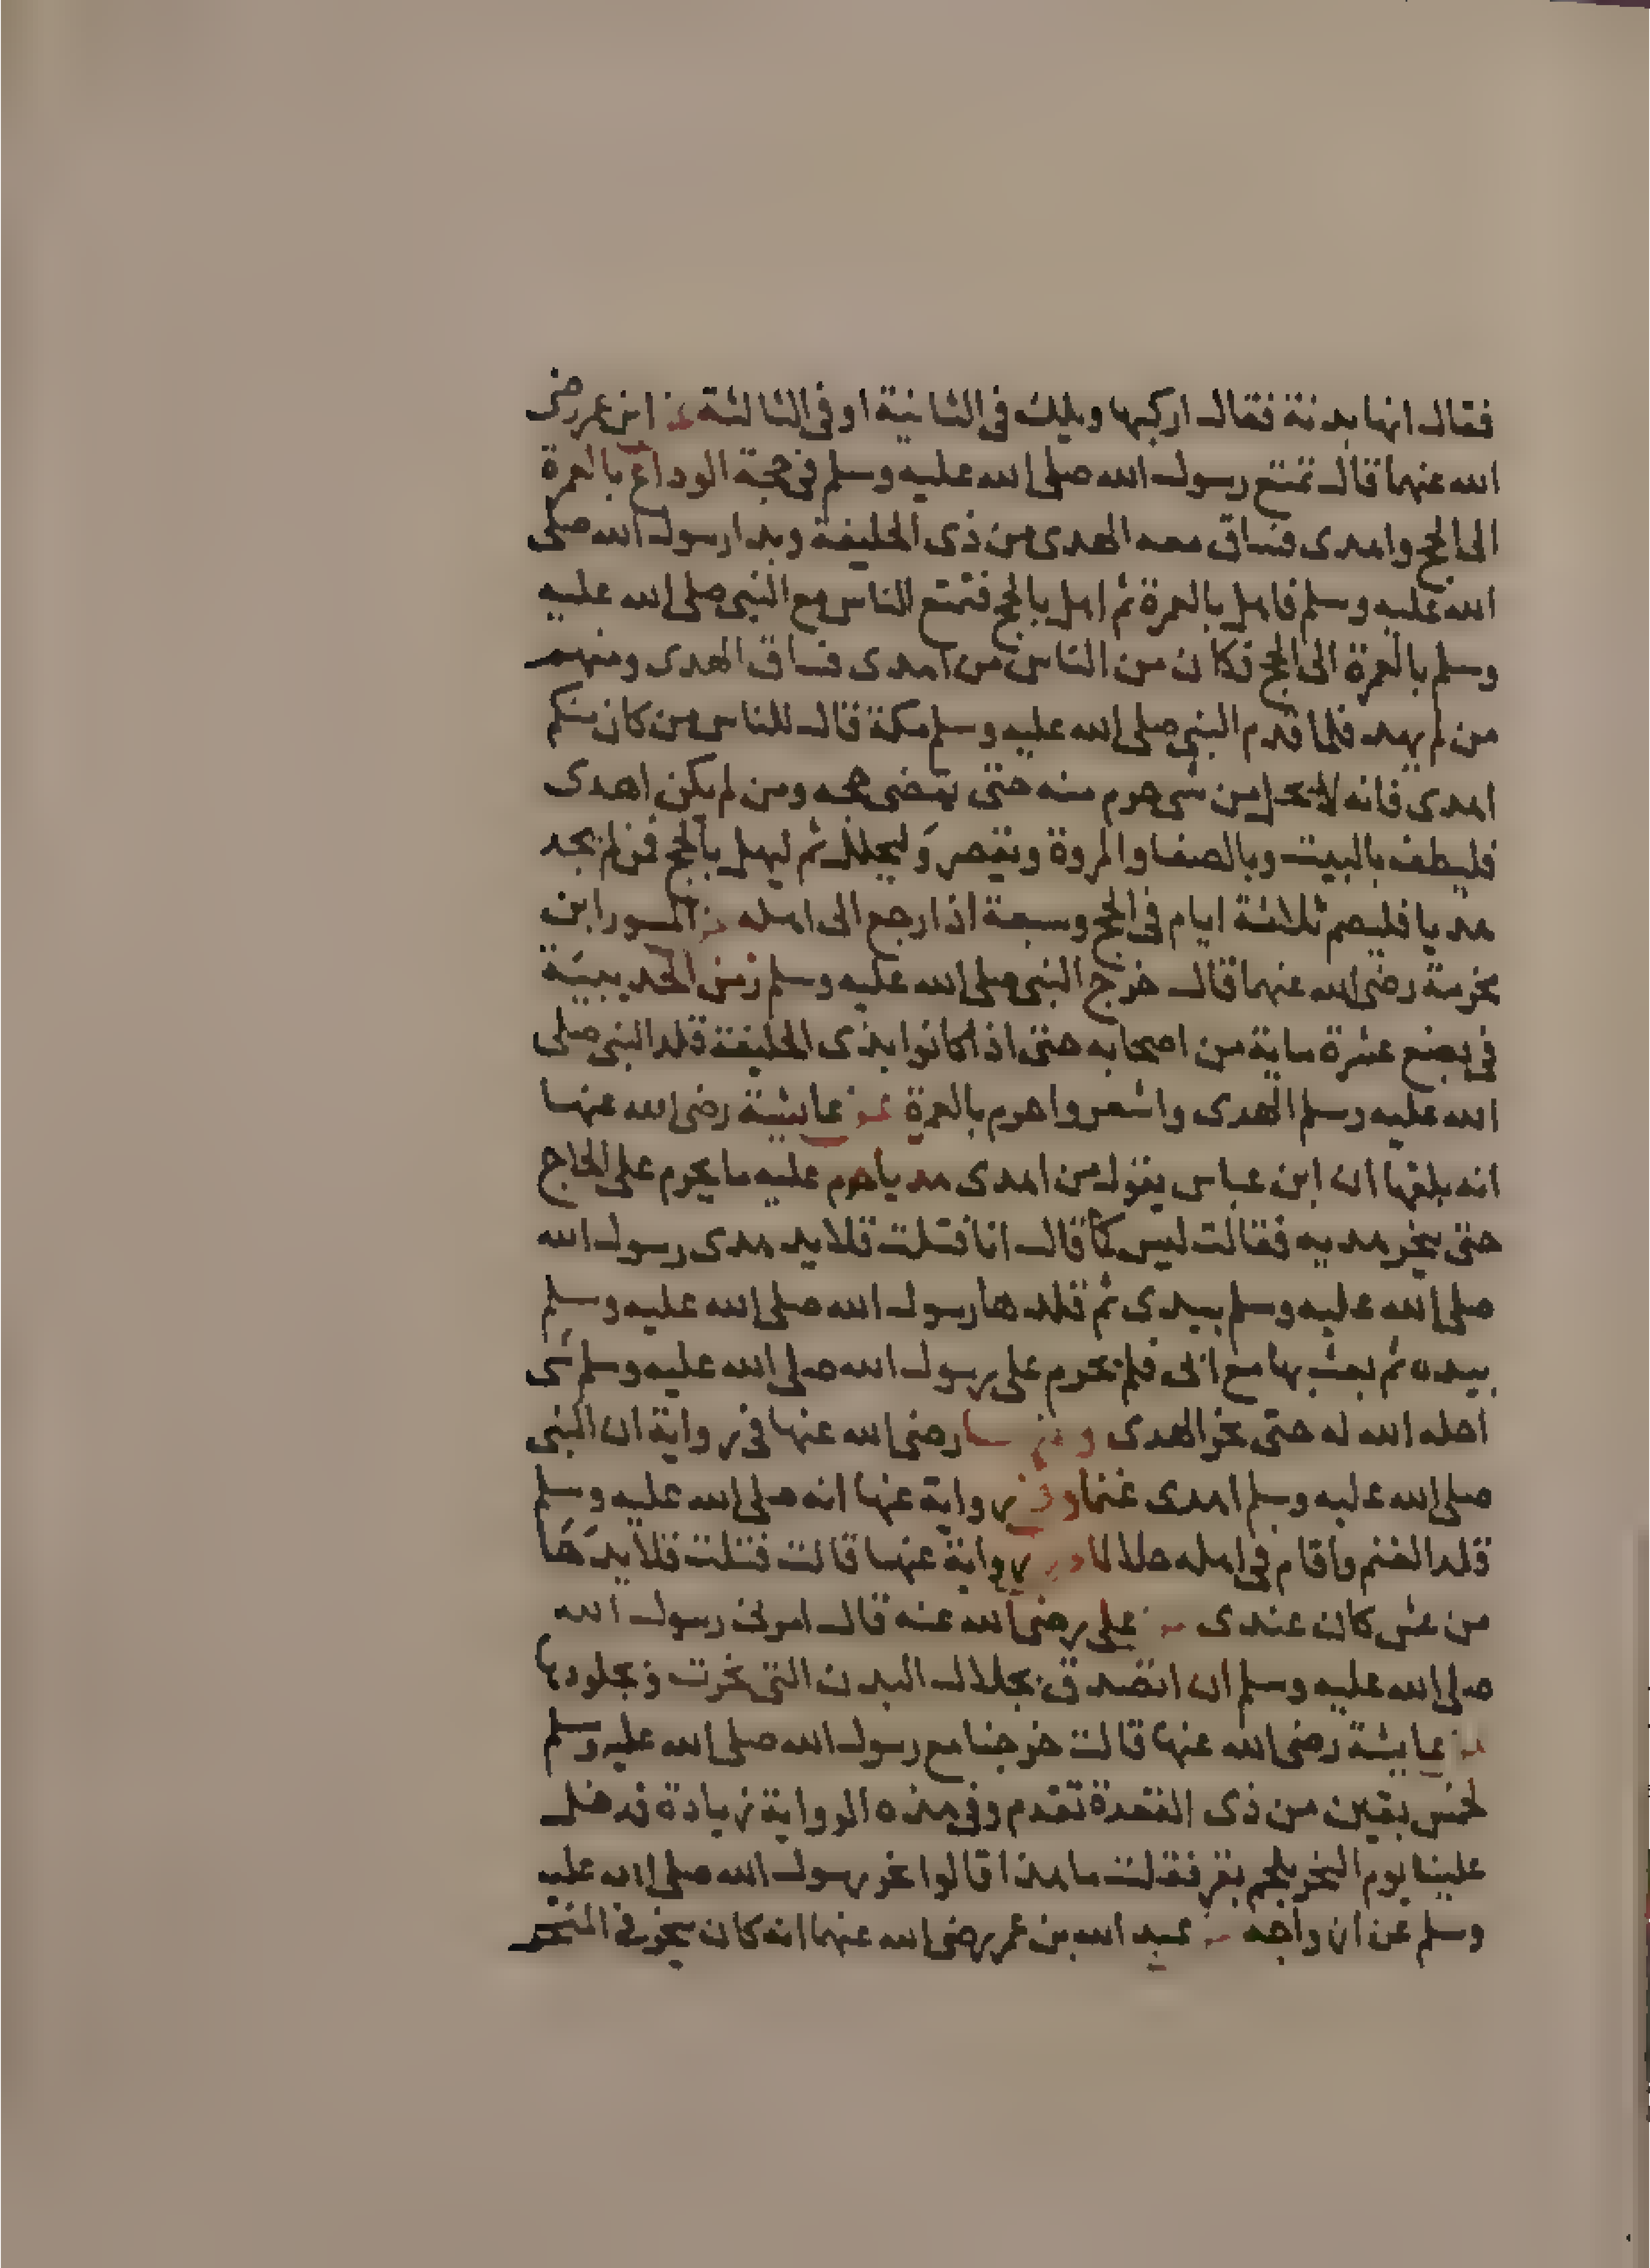 فقال انها بدنة فقال اركبها ويلك في الثانية او في الثالثة عن ابن عمر رضى
الله عنهما قال تمتع رسول الله صلى الله عليه وسلم في حجة الوداع بالعمرة
الى الحج واهدى فساق معه الهدى من ذى الحليفة وبدا رسول الله صلى
الله عليه وسلم فاهل بالعمرة ثم اهل بالحج فتمتع الناس مع النبي صلى الله عليه
وسلم بالعمرة الى الحج فكان من الناس من اهدى فساق الهدى ومنهم
من لم يهد فلما قدم النبي صلى الله عليه وسلم مكة قال للناس من كان منكم
اهدى فانه لا يحل من شى حرم منه حتى يقضى حجه ومن لم يكن اهدى
فليطف بالبيت وبالصفا والمروة ويقصر وليحلل ثم ليهل بالحج فمن لم يجد
هديا فليصم ثلاثة ايام في الحج وسبعة اذا رجع الى اهله عن المسور ابن
مخرمة رضى الله عنهما قال خرج النبي صلى الله عليه وسلم زمن الحديبية
في بضع عشرة ماية من اصحابه حتى اذا كانوا بذى الحليفة قلد النبي صلى
الله عليه وسلم الهدى واشعر واحرم بالعمرة عن عايشة رضى الله عنها
انه بلغها ان ابن عباس يقول من اهدى هديا حرم عليه ما يحرم على الحاج
حتى ينحر هديه فقالت ليس كما قال انا فتلت قلايد هدى رسول الله
صلى الله عليه وسلم بيدى ثم قلدها رسول الله صلى الله عليه وسلم
بيده ثم بعث بها مع ابى فلم يحرم على رسول الله صلى الله عليه وسلم شى
احله الله له حتى نحر الهدى وعنها رضى الله عنها في رواية ان النبي
صلى الله عليه وسلم اهدى غنما وفي رواية عنها انه صلى الله عليه وسلم
قلد الغنم واقام في اهله حلالا وفي رواية عنها قالت فتلت قلايدها
من عهن كان عندى عن على رضى الله عنه قال امرنى رسول الله
صلى الله عليه وسلم ان اتصدق بجلال البدن التى نحرت وبجلودها
عن عايشة رضى الله عنها قالت خرجنا مع رسول الله صلى الله عليه وسلم
لخمس بقين من ذى القعدة تقدم وفي هذه الرواية زيادة فدخل
علينا يوم النحر بلحم بقر فقلت ما هذا قالوا نحر رسول الله صلى الله عليه
وسلم عن ازواجه عن عبد الله بن عمر رضى الله عنهما انه كان ينحر في المنحر